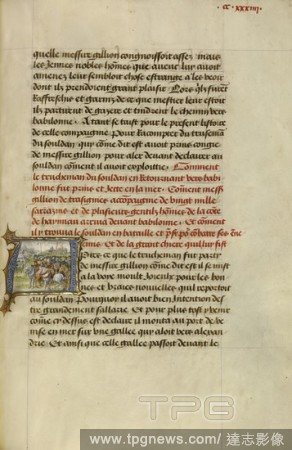 cc xxxiiij
quelle messire gillion congnoissoit assez mais
les jennes nobles hommes que avec luy avoit
amenez leur sembloit chose estrange a les veoir
dont ilz prendoient grant plaisir Lors ilz furent
et garnis de ce que mestier leur estoit
ilz partirent de gayere et tindrent le chemin vers
babilonne A tant se taist pour le present listoire
de celle compaignie Pour racompter du truseman
du souldan quy comme dit est avoit prins congie
de messire gillion pour aler devant declairer au
souldan comment il avoit exploitie Comment
le trucheman du souldan en retournant vers babi
lonne fut prins et jette en la mer Comment mess
gillion de trasignies acompaignie de vingt mille
sarasins et de plusieurs gentilz hommes de la conte
de haynnau arriva devant babilonne Et comment
il trouva le souldan en bataille et prest pour combatre ses enne
mis Et de la grant chiere quil luy fist
Apres ce que le trucheman fut party
de messire gillion comme dit est il se mist
a la voie moult joieulx pour les bon
nes et vraies nouvelles quil reportoit
au souldan Pourquoy il avoit bien Intention des
tre grandement sallarie Et pour plus tost y venir
comme cy dessus est declaire il monta au port de
mise en mer sur une gallee quy aloit vers alexan
drie Et ainsi que celle gallee passoit devant le
TPG
www.tpgnews.com / 達志影像